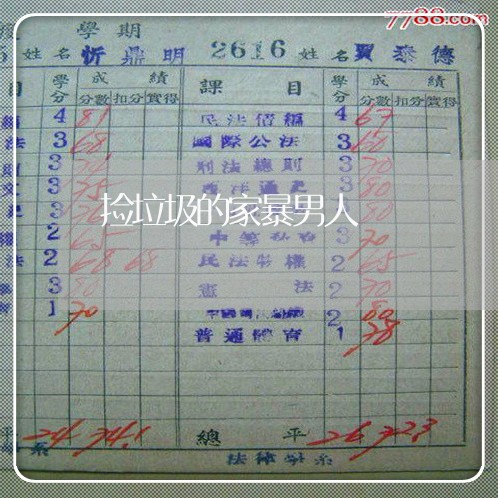 7788.com
學期
姓名 忻鼎明 2616 姓名 賈泰德
目 學分 成績 課目 學分 成績
分數 扣分 實得 分數 扣分 實得
4 81 民法債編 4 67
法 3 68 國際公法 3 60
3 刑法總則 3 70
3 75 3 80
捡垃圾的家暴男人
3 80
2 65 3 70
法 2 68 68 民法物權 2 65
3 80 憲法 2 70
1 70 2 80
普通體育 1 78
平 24 74.1 總平 26 72.3
系 法律學系